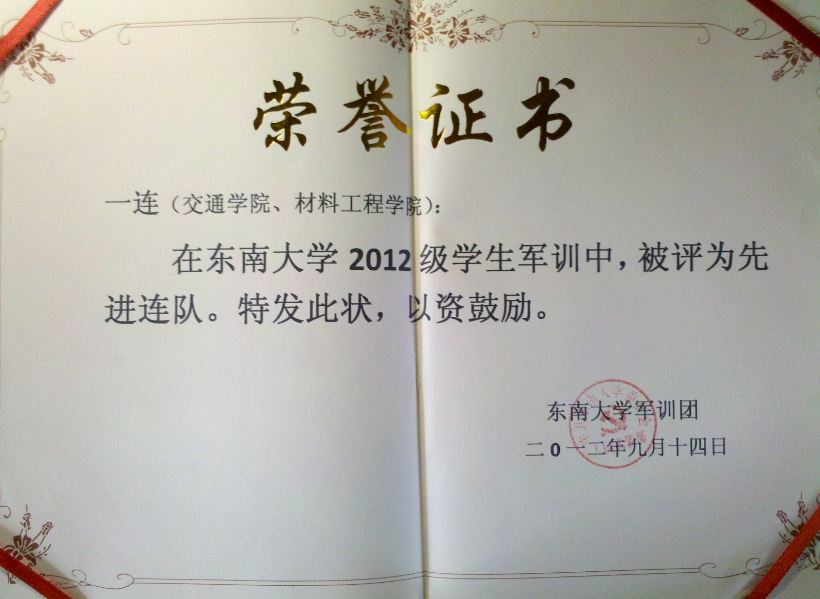 荣誉证书
一连（交通学院、材料工程学院）：
在东南大学 2012 级学生军训中，被评为先
进连队。特发此状，以资鼓励。
东南大学军训团
二 0 一二年九月十四日